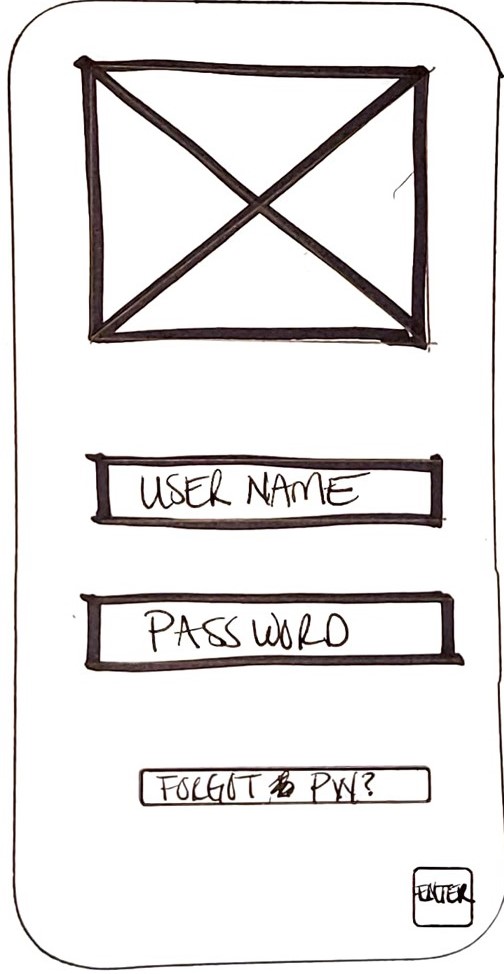 USER NAME
PASSWORD
FORGOT PW?
ENTER